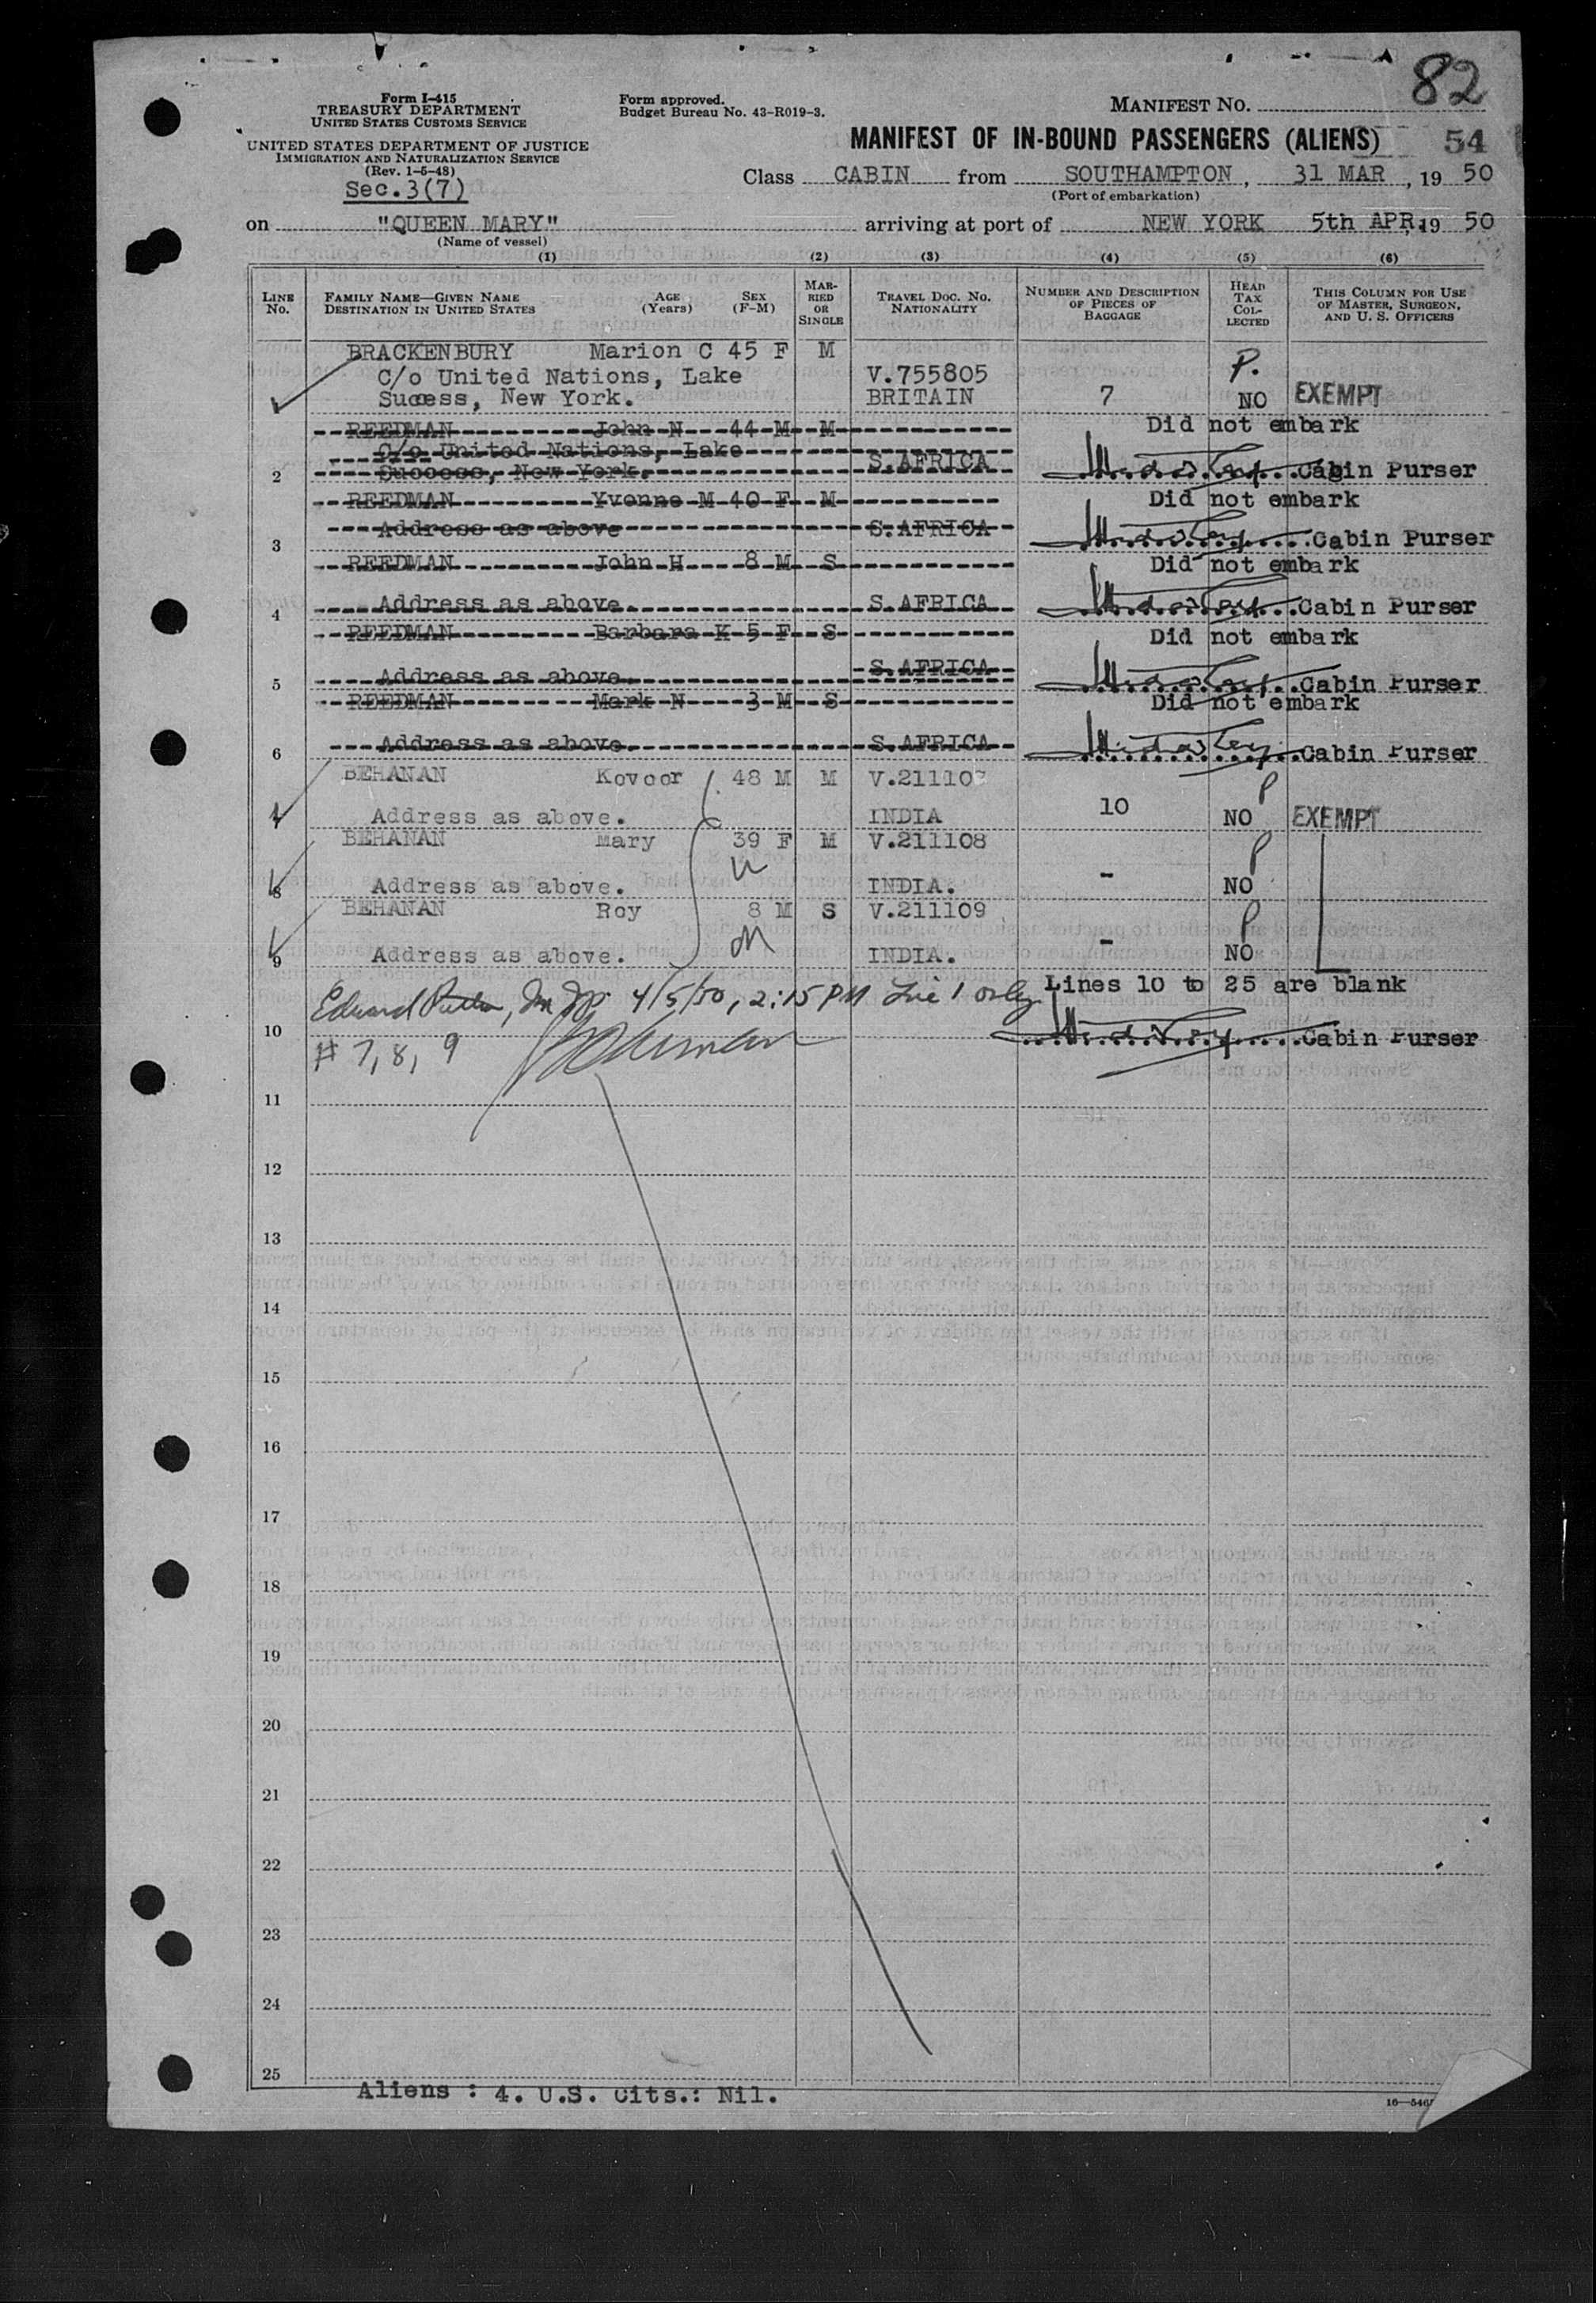 82
Form I-415
TREASURY DEPARTMENT
UNITED STATES CUSTOMS SERVICE
UNITED STATES DEPARTMENT OF JUSTICE
IMMIGRATION AND NATURALIZATION SERVICE
(Rev. 1-5-48)
Sec.3(7)
Form approved.
Budget Bureau No. 43-R019-3.
MANIFEST NO.
MANIFEST OF IN-BOUND PASSENGERS (ALIENS) 54
Class CABIN from SOUTHAMPTON, 31 MAR, 19 50
(Port of embarkation)
on "QUEEN MARY" arriving at port of NEW YORK 5th APR, 19 50
(Name of vessel)
(1) (2) (3) (4) (5) (6)
LINE NO. FAMILY NAME—GIVEN NAME DESTINATION IN UNITED STATES AGE (Years) SEX (F-M) MARRIED OR SINGLE TRAVEL DOC. NO. NATIONALITY NUMBER AND DESCRIPTION OF PIECES OF BAGGAGE HEAD TAX COLLECTED THIS COLUMN FOR USE OF MASTER, SURGEON, AND U. S. OFFICERS
BRACKENBURY Marion C 45 F M P.
C/o United Nations, Lake V.755805
Sucess, New York. BRITAIN 7 NO EXEMPT
REEDMAN John N 44 M M Did not embark
C/o United Nations, Lake
2 Success, New York. S.AFRICA Cabin Purser
REEDMAN Yvonne M 40 F M Did not embark
Address as above S.AFRICA
3 Cabin Purser
REEDMAN John H 8 M S Did not embark
4 Address as above. S.AFRICA Cabin Purser
REEDMAN Barbara K 5 F S Did not embark
5 Address as above. S.AFRICA Cabin Purser
REEDMAN Mark N 3 M S Did not embark
6 Address as above. S.AFRICA Cabin Purser
BEHANAN Kovoor 48 M M V.211107 P
Address as above. INDIA 10 NO EXEMPT
BEHANAN Mary 39 F M V.211108 P
8 Address as above. INDIA. - NO
BEHANAN Roy 8 M S V.211109 P
9 Address as above. INDIA. - NO
Edward 4/5/50, 2:15 PM Line 1 only
Lines 10 to 25 are blank
10 Cabin Purser
# 7, 8, 9
11
12
13
14
15
16
17
18
19
20
21
22
23
24
25
Aliens : 4. U.S. Cits.: Nil.